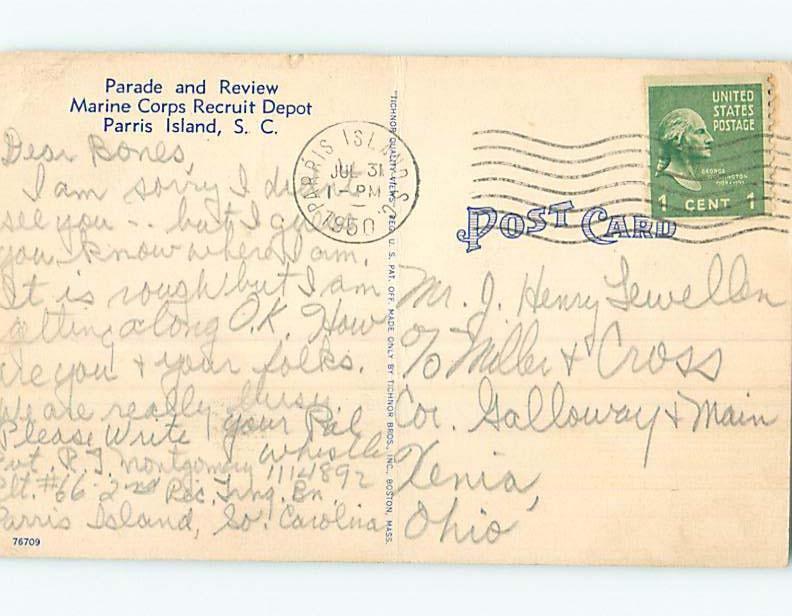 Parade and Review
Marine Corps Recruit Depot
Parris Island, S. C.
Dear Bones,
I am sorry I
see you -- but I
you know where I am.
It is rough but I am
getting along O.K. How
are you & your folks.
We are really busy.
Please Write your Pal
Whistle
Pvt. R. J. Montgomery 1114892
Plt. #66 2nd Rec. Trng. Bn.
Parris Island, So. Carolina
76709
PARRIS ISLAND
JUL 31
PM
1950
S. C.
"TICHNOR QUALITY VIEWS," REG. U. S. PAT. OFF. MADE ONLY BY TICHNOR BROS., INC., BOSTON, MASS.
UNITED
STATES
POSTAGE
GEORGE
WASHINGTON
1 CENT 1
POST CARD
Mr. J. Henry Lewellen
c/o Miller & Cross
Cor. Galloway & Main
Xenia,
Ohio